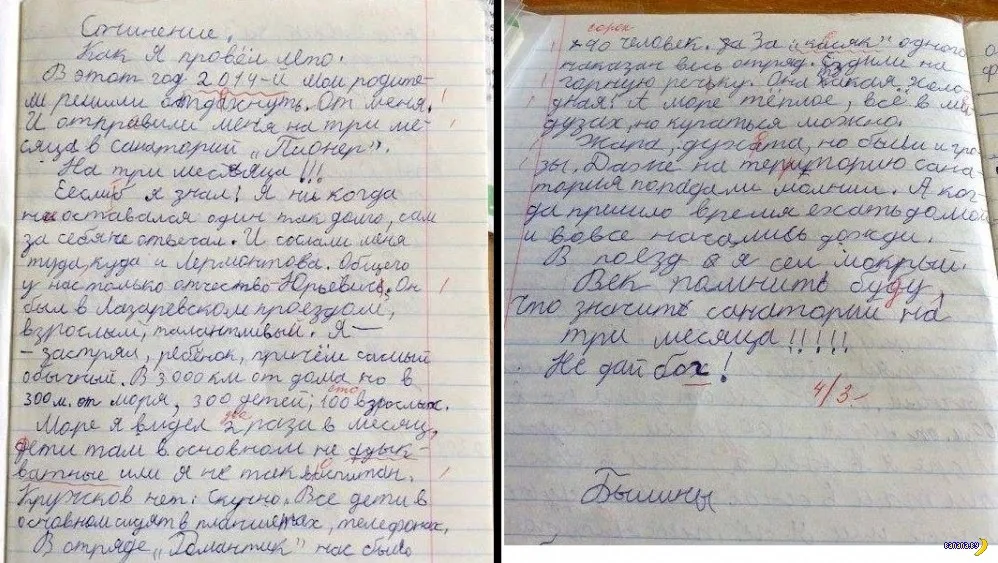 Сочинение.
Как я провёл лето.
В этот год 2014-й мои родите-
ли решили отдахнуть. От меня.
И отправили меня на три ме-
сяца в санаторий „Пионер".
На три месяца!!!
Еслиб я знал! Я ни когда
не оставался один так долго, сам
за себя не отвечал. И сослали меня
туда, куда и Лермонтова. Общего
у нас только отчество Юрьевич. Он
был в Лазаревском проездом,
взрослый, талантливый. Я —
– застрял, ребёнок, причём самый
обычный. В 3000 км от дома но в
300 м. от моря, 300 детей, 100 взрослых.
сто
Море я видел 2 раза в месяц,
два
дети там в основном не
ватные или я не так воспитан.
Кружков нет. Скучно. Все дети в
основном сидят в планшетах, телефонах.
В отряде „Романтик" нас было
сорок
40 человек. да За „косяк" одного
наказан весь отряд. Ездили на
горную речьку. Она такая холо-
дная! А море тёплое, всё в ме-
дузах, но купаться можно.
Жара, духата, но были и гро-
зы. Даже на территорию сана-
тория попадали молнии. А ког-
да пришло время ехать домой
и вовсе начались дожди.
В поезд я сел мокрый.
Век помнить буду,
что значить санаторий на
три месяца!!!!!
Не дай бох!
4/3-
Былины
banana.by